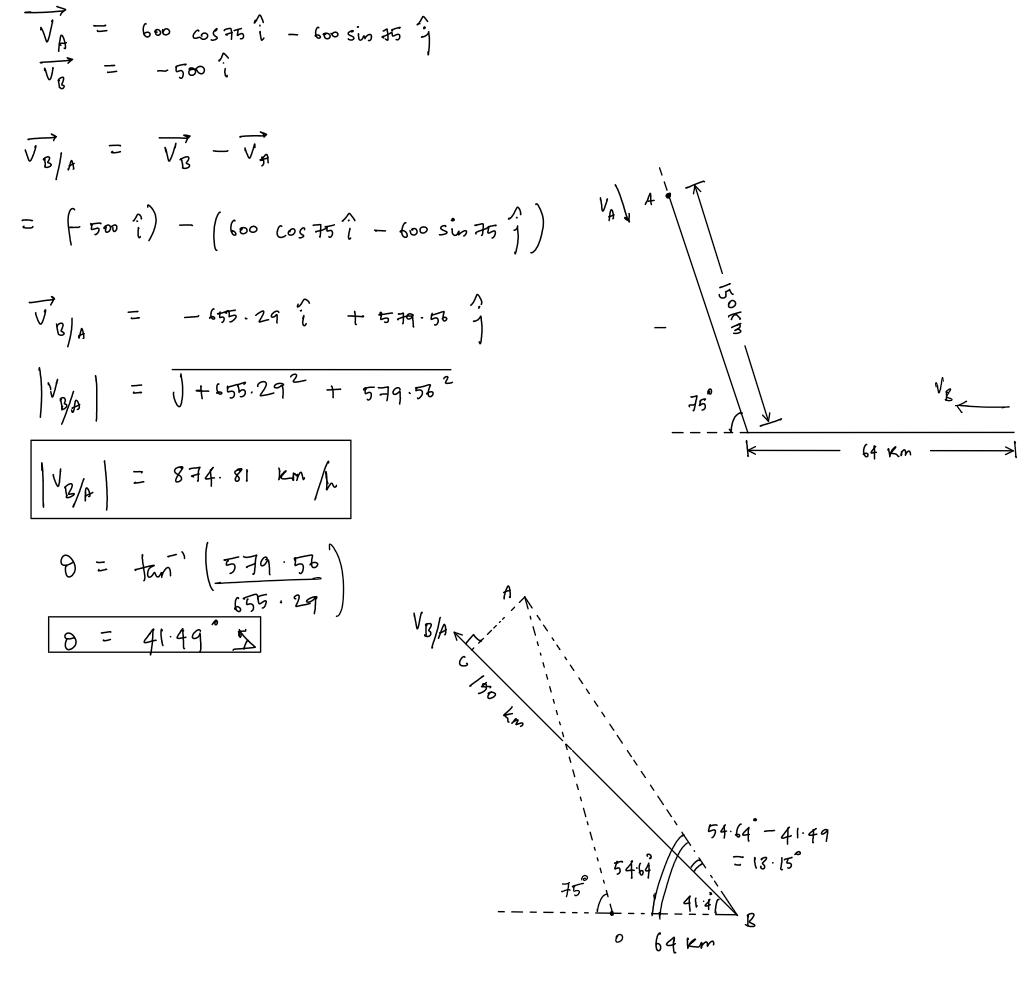 \vec{V_A} = 600 cos 75 \hat{i} - 600 sin 75 \hat{j}
\vec{V_B} = - 500 \hat{i}
\vec{V_{B/A}} = \vec{V_B} - \vec{V_A}
= (-500 \hat{i}) - (600 cos 75 \hat{i} - 600 sin 75 \hat{j})
\vec{V}_{B/A} = - 655.29 \hat{i} + 579.56 \hat{j}
|V_{B/A}| = √(+655.29² + 579.56²)
|V_{B/A}| = 874.81 km/h
θ = tan⁻¹ (579.56 / 655.29)
θ = 41.49°
V_A
A
150 km
75°
V_B
64 km
A
V_{B/A}
C
150 km
54.64° - 41.49
= 13.15°
54.64°
75°
41.4°
B
O
64 km